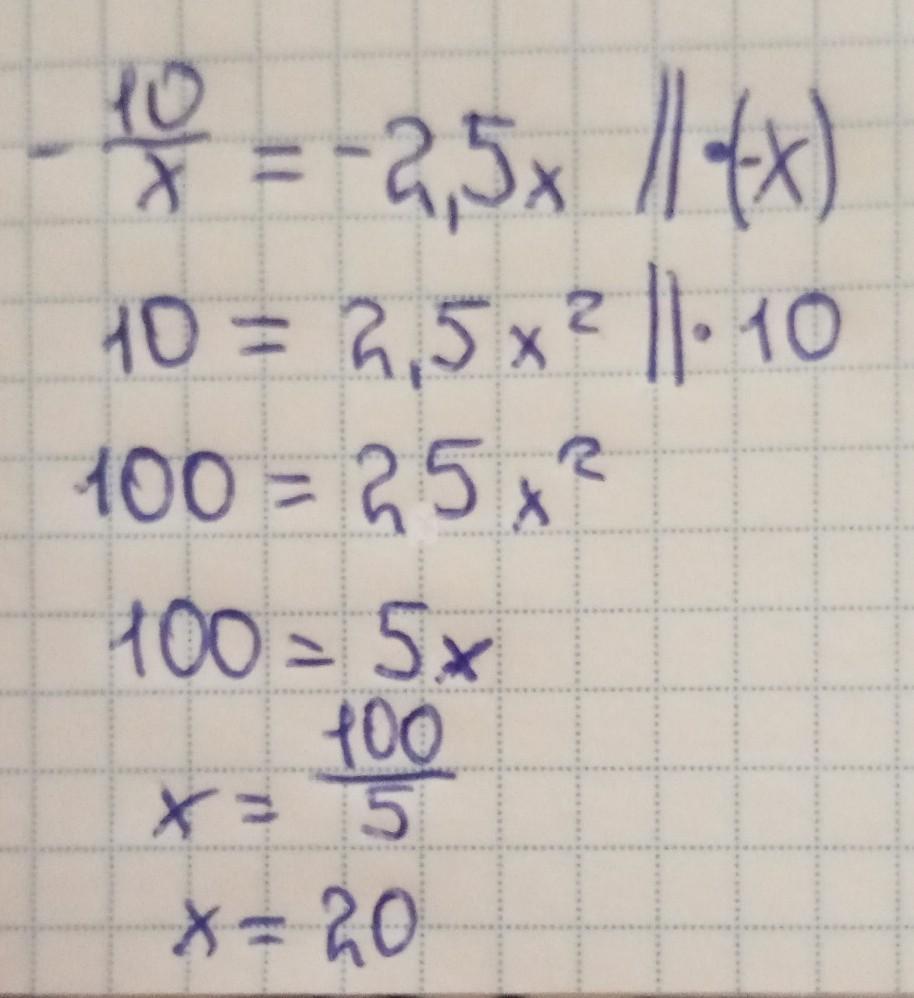 -10/x = -2,5x ||·(-x)
10 = 2,5x² ||·10
100 = 25x²
100 = 5x
x = 100/5
x = 20